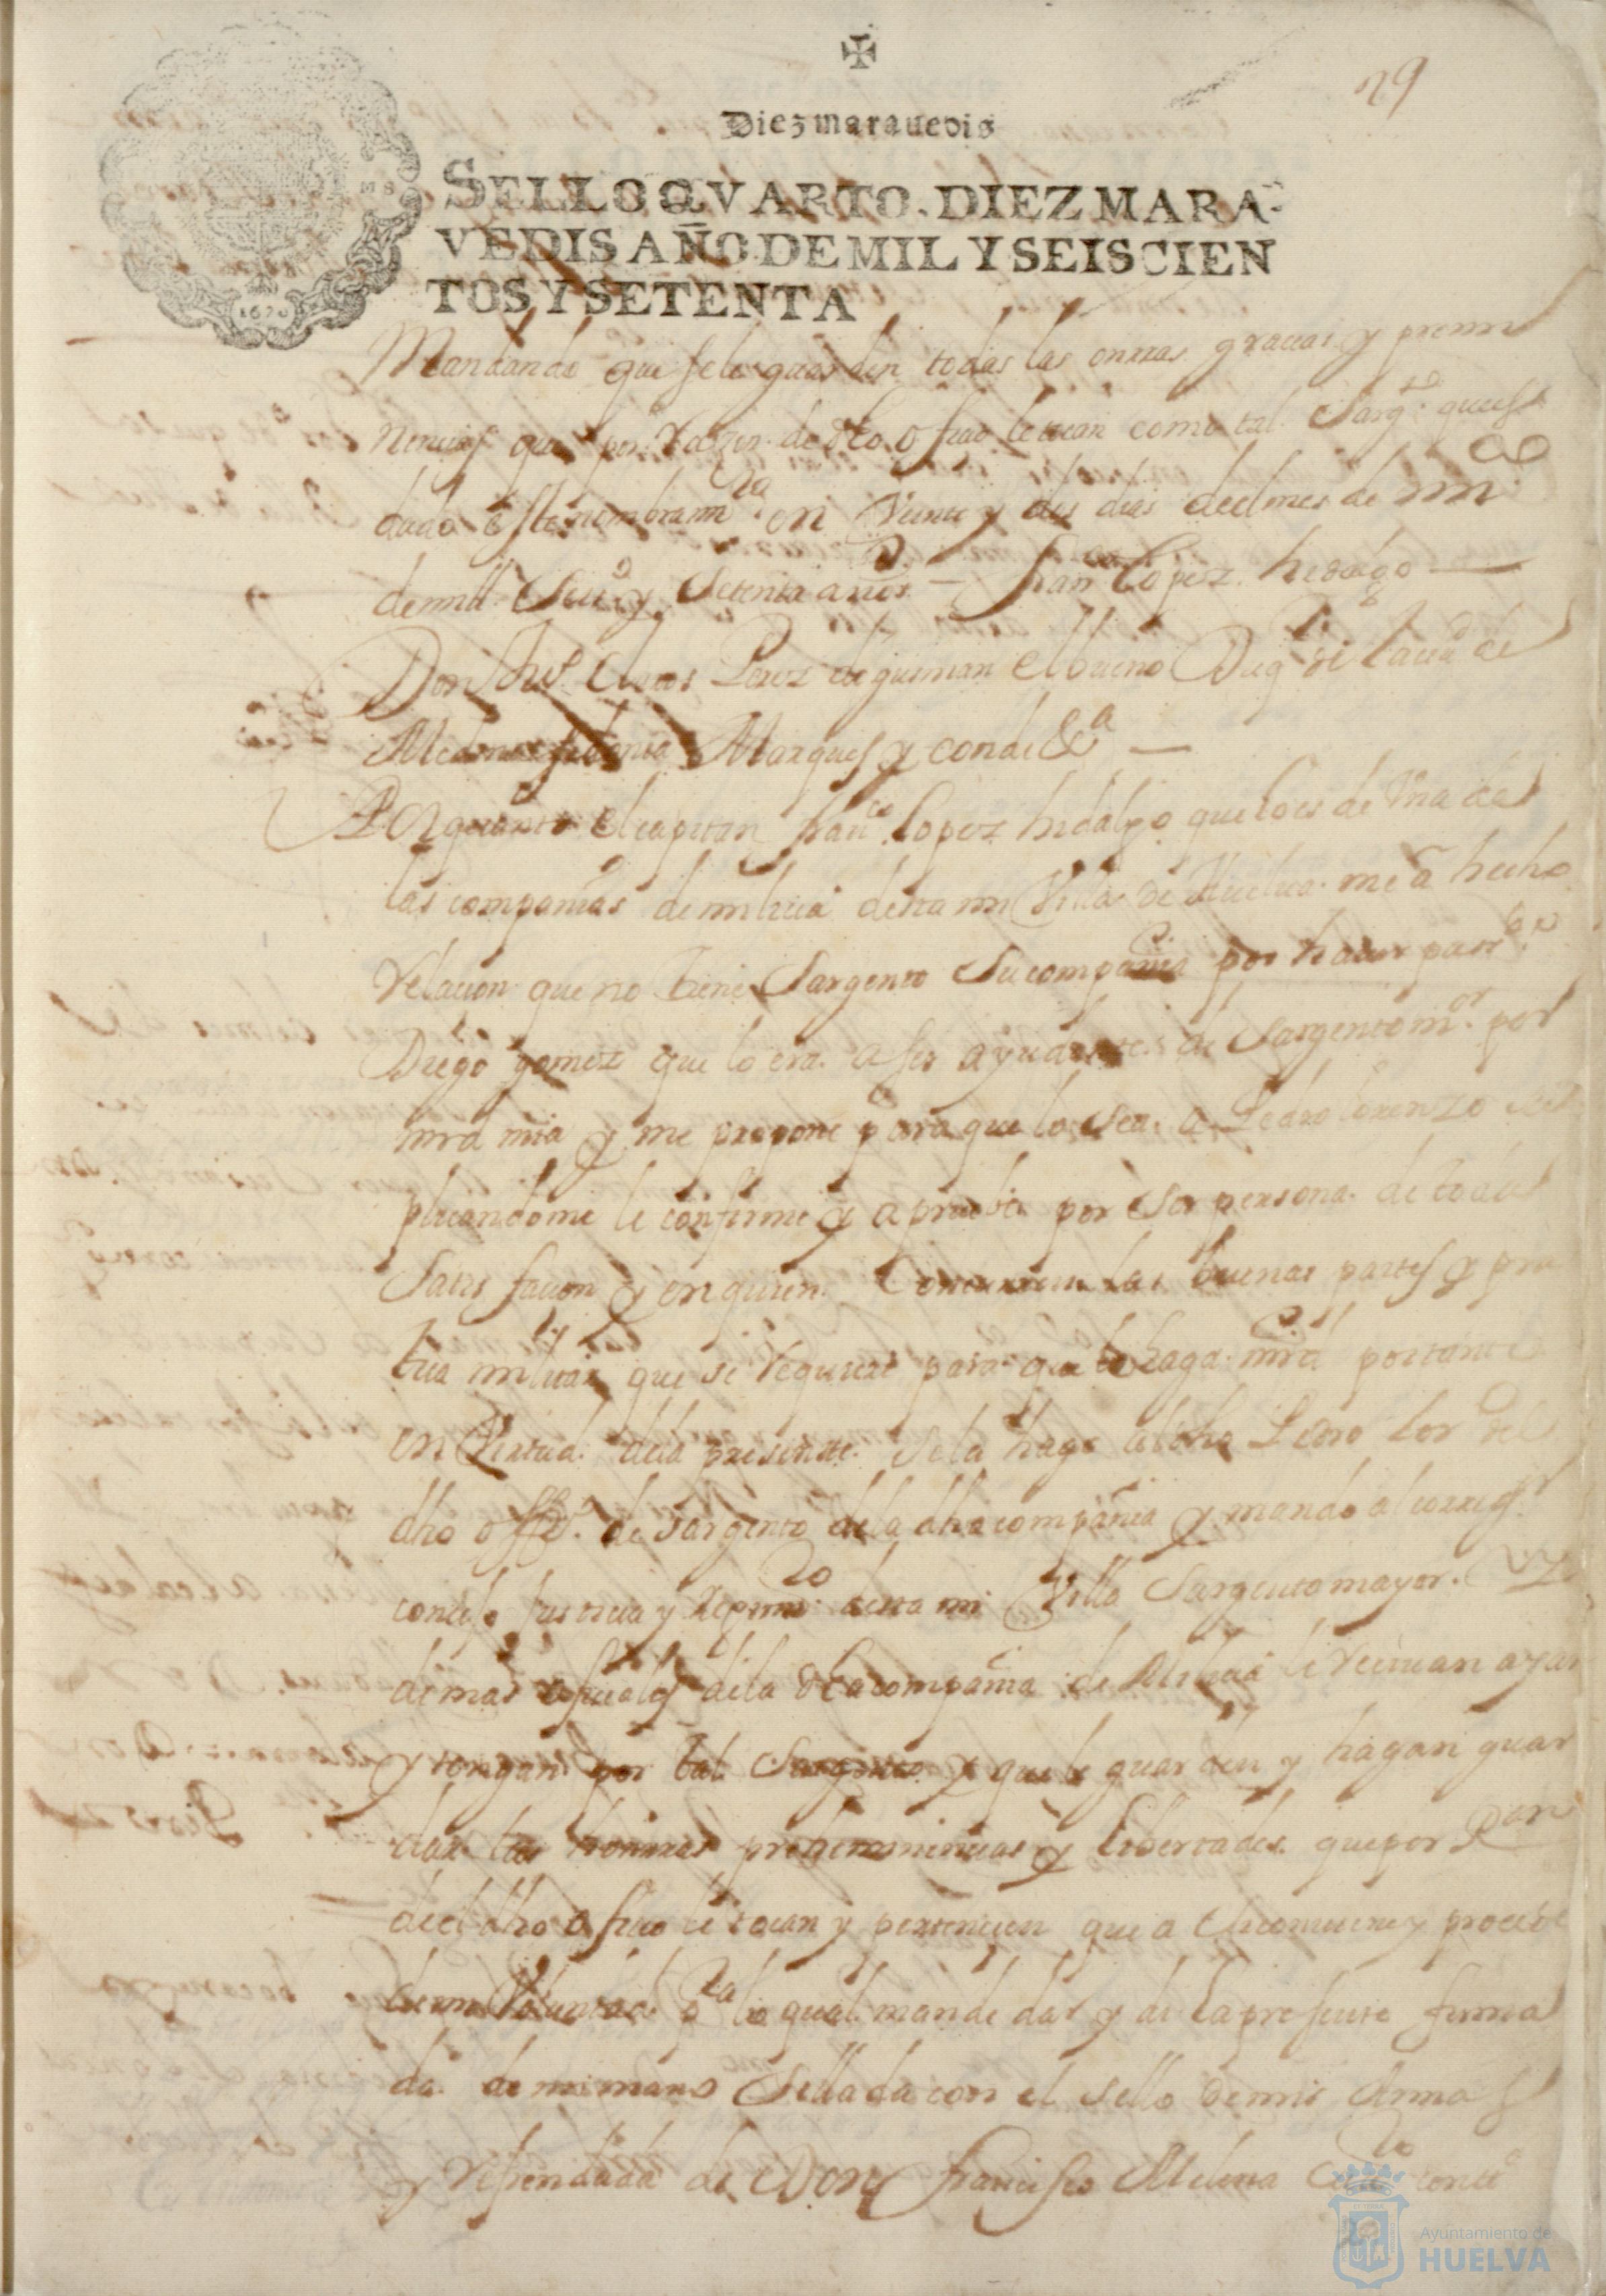 29
Diez maravedis
SELLO QVARTO. DIEZ MARA-
VEDIS AÑO DE MIL Y SEISCIEN
TOS Y SETENTA
1670
Mandando que se le guarden todas las onrras gracias y premi
nencias que por Razon de dho ofizio le tocan como tal Sargto que es
dado este nombramto en Veinte y dos dias del mes de
de mill Seiso y Setenta años — Franco Lopez hidalgo —
Don Claros Perez de guzman el bueno Duq de la ciud de
Medina sidonia Marques y conde &a —
Por quanto el capitan franco Lopez hidalgo que lo es de Vna de
las companias de milicia desta mi Villa de Huelva me a hecho
Relacion que no tiene Sargento Su compania por haver pasdo
Diego gomez que lo era a ser ayudante de Sargento mor por
mrd mia y me propone para que lo sea a Pedro lorenzo
plicandome le confirme y apruebe por Ser persona de toda
Satisfacion y en quien Concurren las buenas partes y pra
tica militar que se Requiere para que le haga mrd por tanto
en Virtud de la presente se la hago al dho Pedro Lor del
dho offo de sargento de la dha compania y mando al corregor
consejo Justicia y Regimto desta mi Villa Sargento mayor y
demas ofiziales de la dha compania de Milicia le Reciuan ayan
y tengan por tal Sargento y que le guarden y hagan guar
dar las honrras preheminencias y libertades que por Raon
de el dho ofizio le tocan y pertenecen que a Asi conviene y procede
de mi Voluntad pa lo qual mande dar y di la presente firma
da de mi mano Sellada con el sello de mis Armas
y Refrendada de Don Francisco Molina
Ayuntamiento de
HUELVA